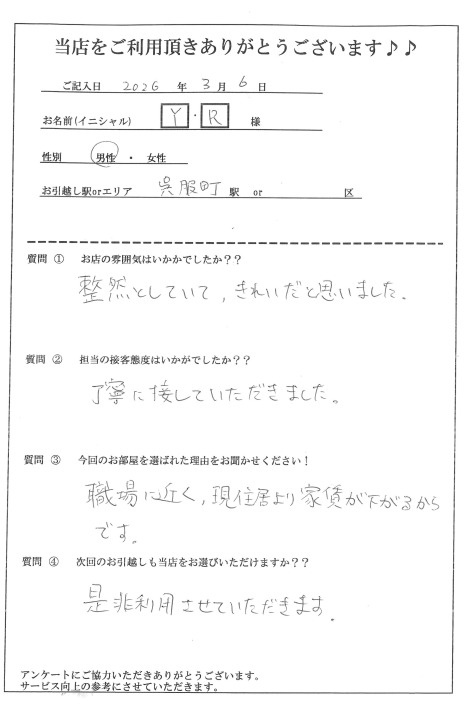 当店をご利用頂きありがとうございます♪♪
ご記入日 2026 年 3 月 6 日
お名前(イニシャル) Y・R 様
性別 男性 ・ 女性
お引越し駅orエリア 呉服町 駅 or 区
質問 ① お店の雰囲気はいかかでしたか??
整然としていて,きれいだと思いました.
質問 ② 担当の接客態度はいかがでしたか??
丁寧に接していただきました。
質問 ③ 今回のお部屋を選ばれた理由をお聞かせください!
職場に近く,現住居より家賃が下がるから
です.
質問 ④ 次回のお引越しも当店をお選びいただけますか??
是非利用させていただきます.
アンケートにご協力いただきありがとうございます。
サービス向上の参考にさせていただきます。